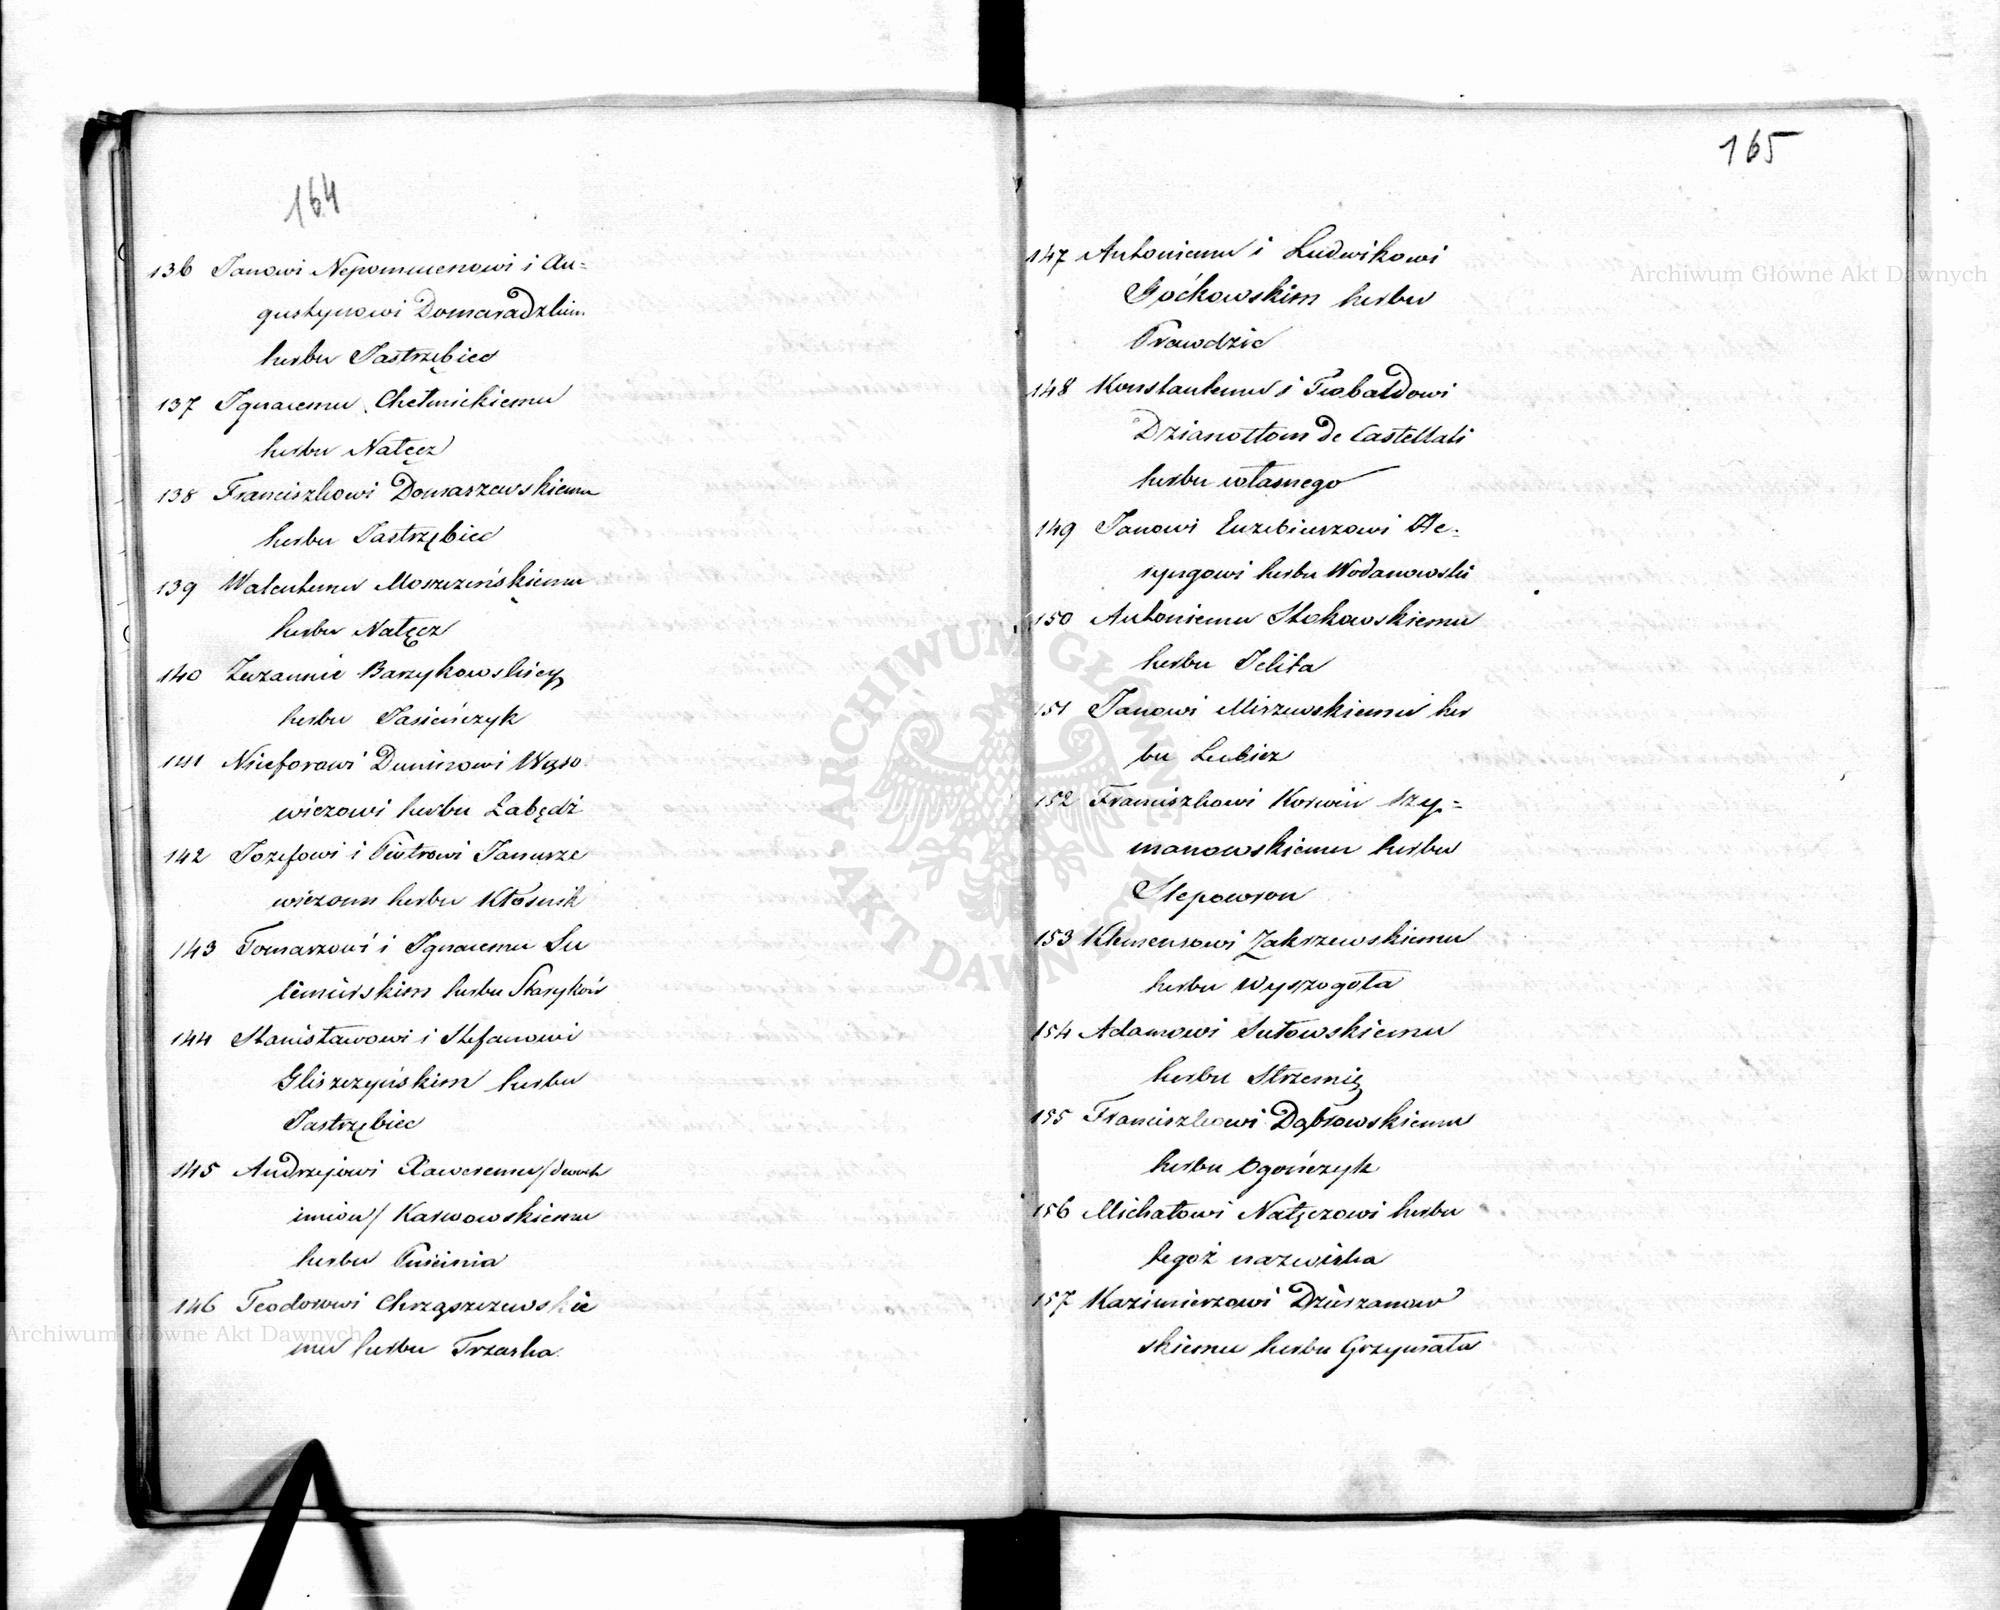 164
136 Janowi Nepomucenowi i Au=
gustynowi Domaradzkim
herbu Jastrzębiec
137 Ignacemu Chełmickiemu
herbu Nałęcz
138 Franciszkowi Domaszewskiemu
herbu Jastrzębiec
139 Walentemu Moszczeńskiemu
herbu Nałęcz
140 Zuzannie Barzykowskiey
herbu Jasieńczyk
141 Niceforowi Duninowi Wąso
wiczowi herbu Łabędź
142 Jozefowi i Piotrowi Janusze
wiczom herbu Kłośnik
143 Tomaszowi i Ignacemu Su
limirskim herbu Starykoń
144 Stanisławowi i Stefanowi
Gliszczyńskim herbu
Jastrzębiec
145 Andrzejowi Xaweremu /dwoch
imion/ Karwowskiemu
herbu Pniejnia
146 Teodorowi Chrząszczewskie
mu herbu Trzaska.
165
147 Antoniemu i Ludwikowi
Goćkowskim herbu
Prawdzic
148 Konstantemu i Teobaldowi
Dzianottom de Castellati
herbu własnego
149 Janowi Euzebiuszowi He=
ryngowi herbu Wodanowski
150 Antoniemu Stokowskiemu
herbu Jelita
151 Janowi Mirzewskiemu her
bu Lubicz
152 Franciszkowi Korwin Szy=
manowskiemu herbu
Slepowron
153 Klemensowi Zakrzewskiemu
herbu Wyszogota
154 Adamowi Sutowskiemu
herbu Strzemię
155 Franciszkowi Dąbrowskiemu
herbu Ogończyk
156 Michałowi Nałęczowi herbu
tegoż nazwiska
157 Kazimierzowi Dzierzanow
skiemu herbu Grzymała
Archiwum Główne Akt Dawnych
Archiwum Główne Akt Dawnych
ARCHIWUM GŁÓWNE AKT DAWNYCH